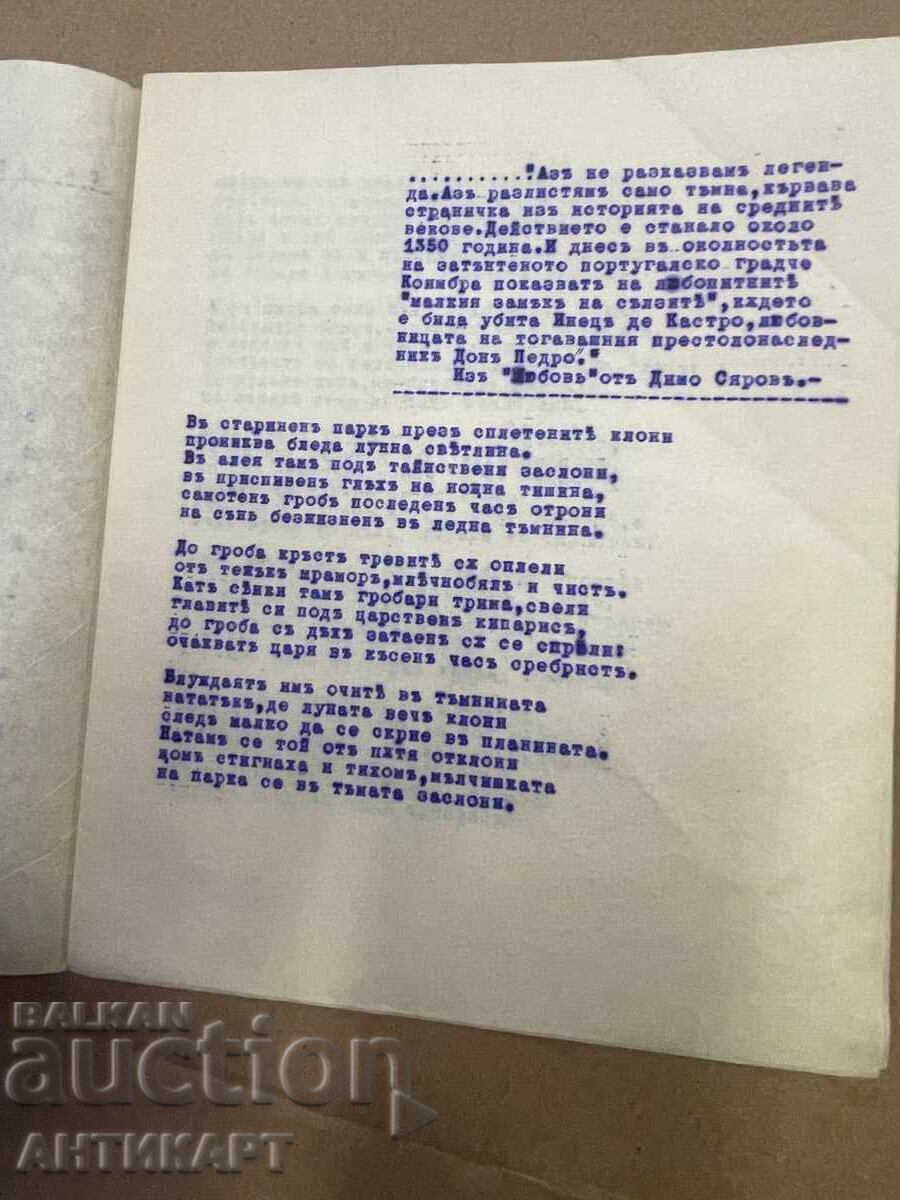 .........."Азъ не разказвамъ леген-
да.Азъ разлистямъ само тъмна,кървава
страничка изъ историята на среднитѣ
векове.Действието е станало около
1350 година.И днесъ въ околностьта
на затънтеното португалско градче
Коимбра показватъ на любопитнитѣ
"малкия замъкъ на сълзитѣ",кѫдето
е била убита Инецъ де Кастро,любов-
ницата на тогавашния престолонаслед-
никъ Донъ Педро"."
Изъ "Любовь"отъ Димо Сяровъ.-
Въ старинен паркъ презъ сплетенитѣ клони
прониква бледа лунна свѣтлина.
Въ алея тамъ подъ тайнствени заслони,
въ приспивенъ глъхъ на нощна тишина,
самотенъ гробъ последенъ часъ отрони
на сънь безжизненъ въ ледна тъмнина.
До гроба кръстъ тревитѣ сѫ оплели
отъ тежъкъ мраморъ,млѣчнобялъ и чистъ.
Катъ сѣнки тамъ гробари трима,свели
главитѣ си подъ царственъ кипарисъ,
до гроба съ дъхъ затаенъ сѫ се спрѣли:
очакватъ царя въ късенъ часъ сребристъ.
Блуждаятъ имъ очитѣ въ тъмнината
нататъкъ,де луната вечъ клони
следъ малко да се скрие въ планината.
Натамъ се той отъ пѫтя отклони
щомъ стигнаха и тихомъ,мълчишката
на парка се въ тъмата заслони.
BALKAN
auction
АНТИКАРТ